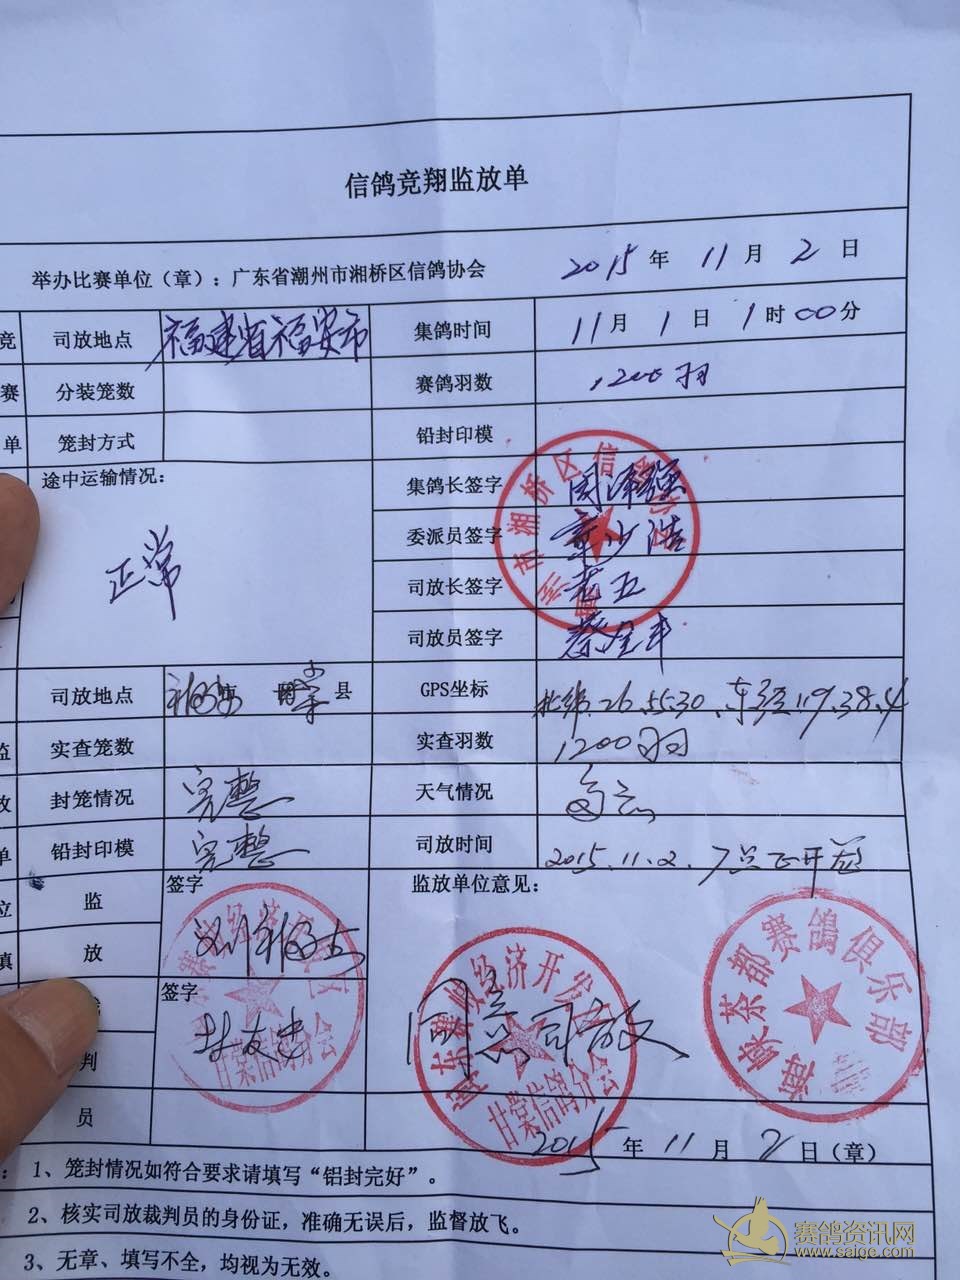 信鸽竞翔监放单
举办比赛单位（章）：广东省潮州市湘桥区信鸽协会 2015年11月2日
竞 司放地点 福建省福安市 集鸽时间 11月1日1时00分
赛 分装笼数 赛鸽羽数 1200羽
单 笼封方式 铅封印模
途中运输情况： 集鸽长签字
正常 委派员签字
司放长签字 老五
司放员签字
司放地点 福安 县 GPS坐标 北纬.26.55.30、东经119.38.4
监 实查笼数 实查羽数 1200羽
放 封笼情况 完整 天气情况 多云
单 铅封印模 完整 司放时间 2015.11.2.7点正开笼
位 监 签字 监放单位意见：
填 放
签字 林友建 同意司放
判
员 2015年11月2日（章）
市湘桥区信
经济开发区
甘棠信鸽分会
经济开发区
甘棠信鸽分会
海峡茶都赛鸽俱乐部
：1、笼封情况如符合要求请填写“铝封完好”。
2、核实司放裁判员的身份证，准确无误后，监督放飞。
3、无章、填写不全，均视为无效。
赛鸽资讯网
www.saige.com